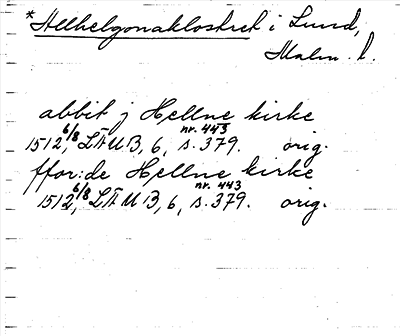 *Allhelgonaklostret i Lund,
Malm. l.
abbit j Hellne kirke
1512 6/8, LÄUB, 6, nr. 443 s. 379. orig.
ffor:de Hellne kirke
1512 6/8, LÄUB, 6, nr. 443 s. 379. orig.